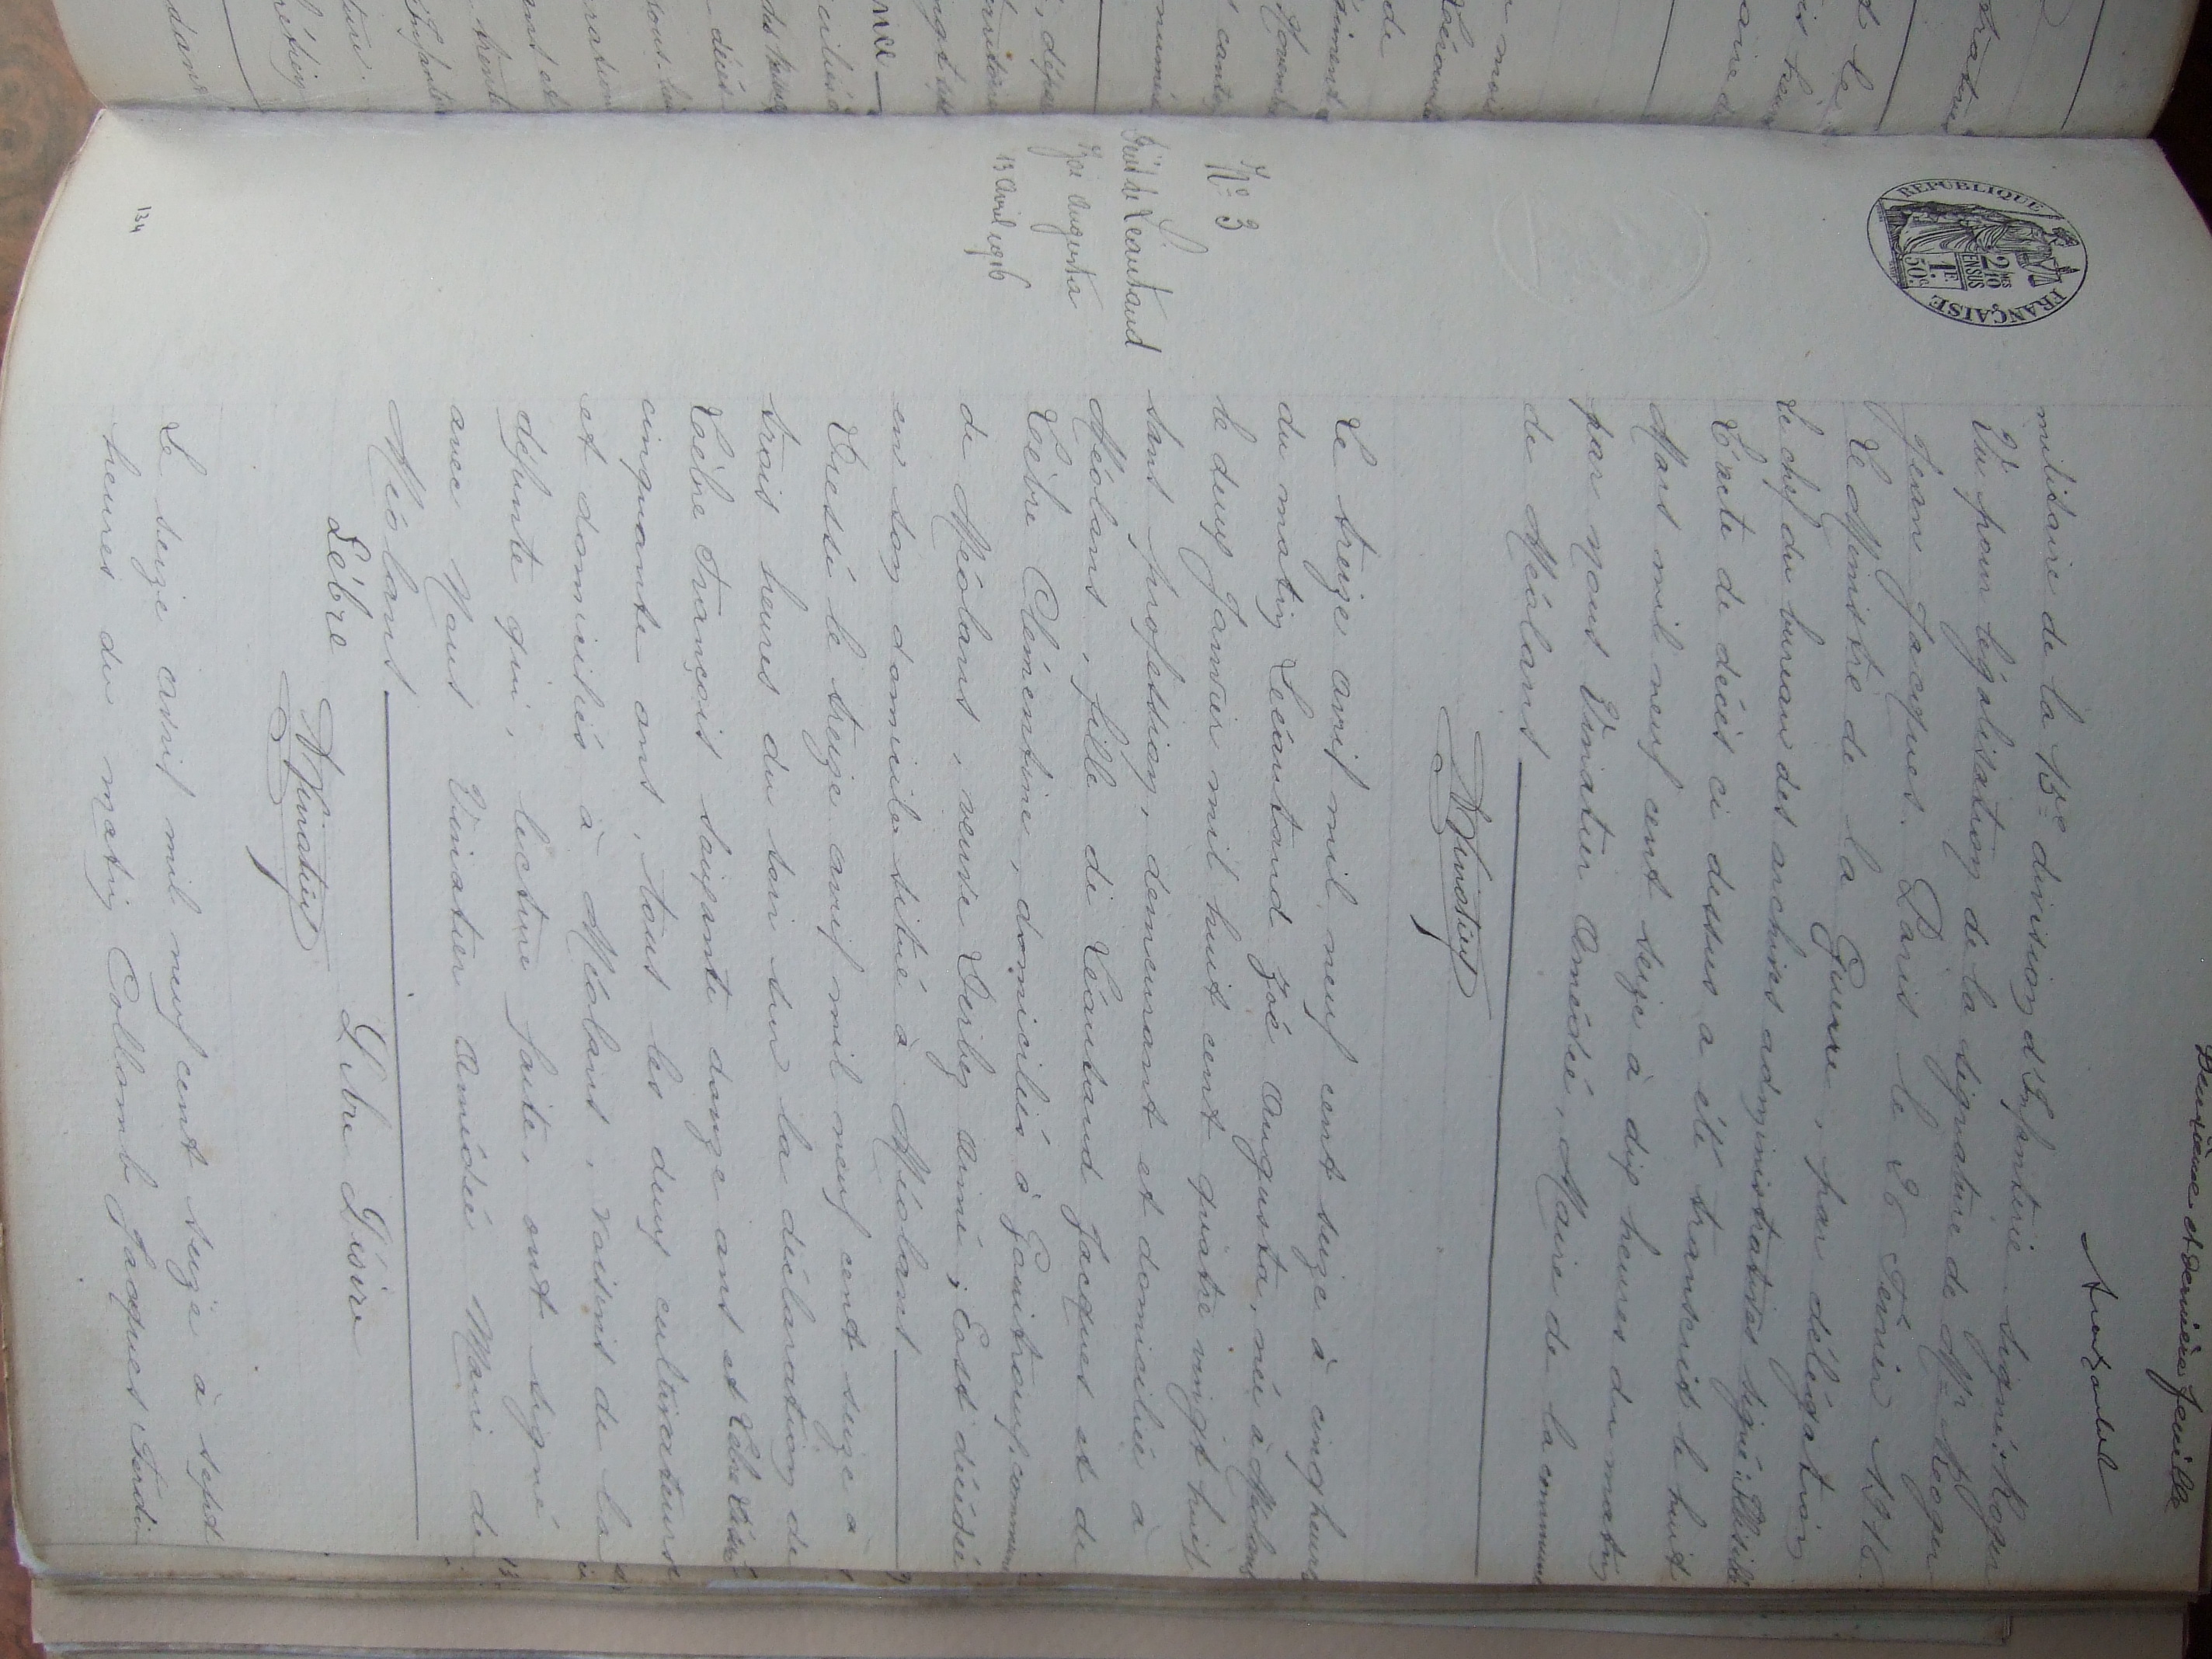 Deuxième et dernière feuille
militaire de la 15e division d'Infanterie signé: Roger
Vu pour légalisation de la signature de Mr Roger
Jean Jacques. Paris le 26 Février 1916.
Le Ministre de la Guerre, par délégation
le chef du bureau des archives administratives signé: Illisible
L'acte de décès ci dessus a été transcrit le huit
Mars mil neuf cent seize à dix heures du matin
par nous Vinatier Amédée, Maire de la commune
de Méolans
AVinatier
No 3
Décès de Léautaud
Zoé Augusta
13 avril 1916
Le treize avril mil neuf cent seize à cinq heures
du matin Léautaud Zoé Augusta, née à Méolans
le deux Janvier mil huit cent quatre vingt huit
sans profession, demeurant et domiciliée à
Méolans, fille de Léautaud Jacques et de
Lèbre Clémentine, domiciliés à Gouitrouif, commune
de Méolans, veuve Derbez Aimé; Est décédée
en son domicile situé à Méolans
Dressé le treize avril mil neuf cent seize à
trois heures du soir sur la déclaration de
Lèbre François soixante douze ans et Lèbre Désiré
cinquante ans, tous les deux cultivateurs
et domiciliés à Méolans, voisins de la
défunte qui, lecture faite, ont signé
avec Nous Vinatier Amédée Maire de
Méolans
Lèbre Lèbre Désiré
AVinatier
Le seize avril mil neuf cent seize à sept
heures du matin Collomb Jacques Ferdi
134
REPUBLIQUE FRANÇAISE
2/10 EN SUS
1F 50c